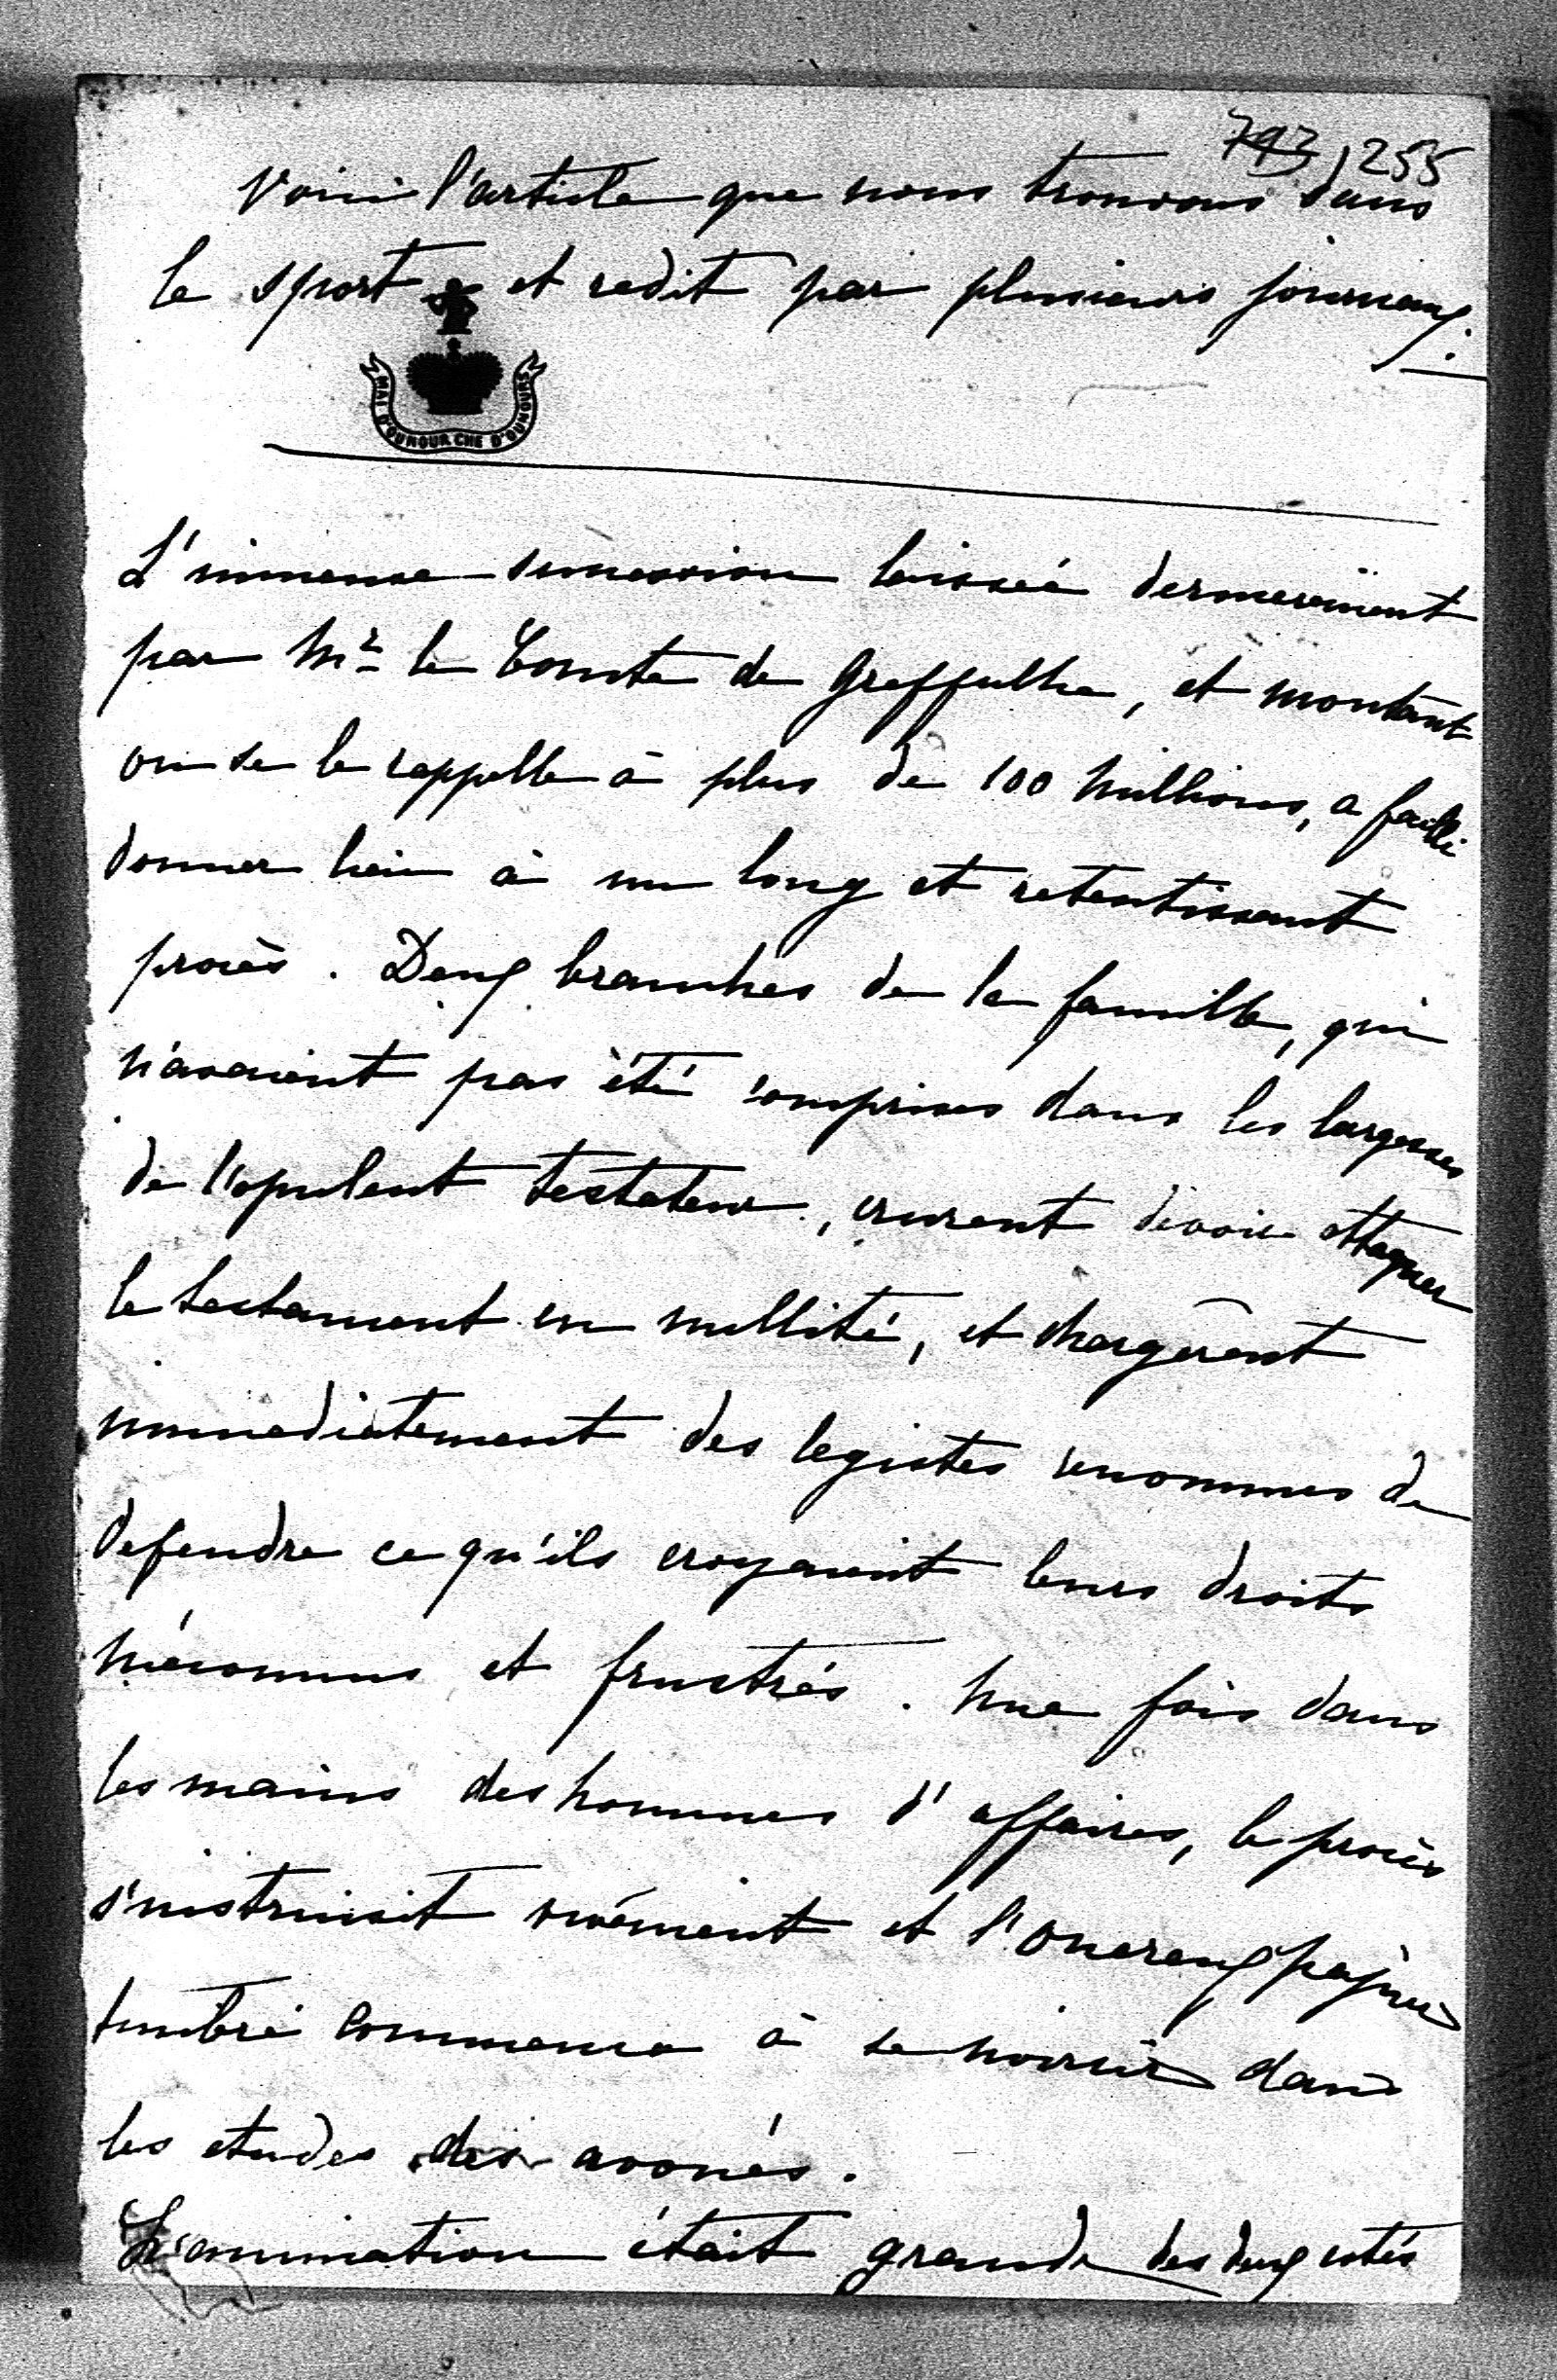 793, 255
Voici l'article que nous trouvons dans
le sport et redit par plusieurs journaux.
MAI D'OUNOUR CHE D'OUNOURS
L'immense succession laissée dernierement
par Mr le Comte de Greffulhe, et montant
on se le rappelle à plus de 100 Millions, a failli
donner lieu à un long et retentissant
procès. Deux branches de la famille, qui
n'avaient pas été comprises dans les largesses
de l'opulent testateur, crurent devoir attaquer
le testament en nullité, et chargèrent
immediatement des legistes renommes de
defendre ce qu'ils croyaient leurs droits
méconnus et frustrés. Une fois dans
les mains des hommes d'affaires, le procès
s'instruisit vivement et l'onereux papier
timbré commenca à se noircir dans
les etudes des avoués.
L'animation était grande des deux cotés